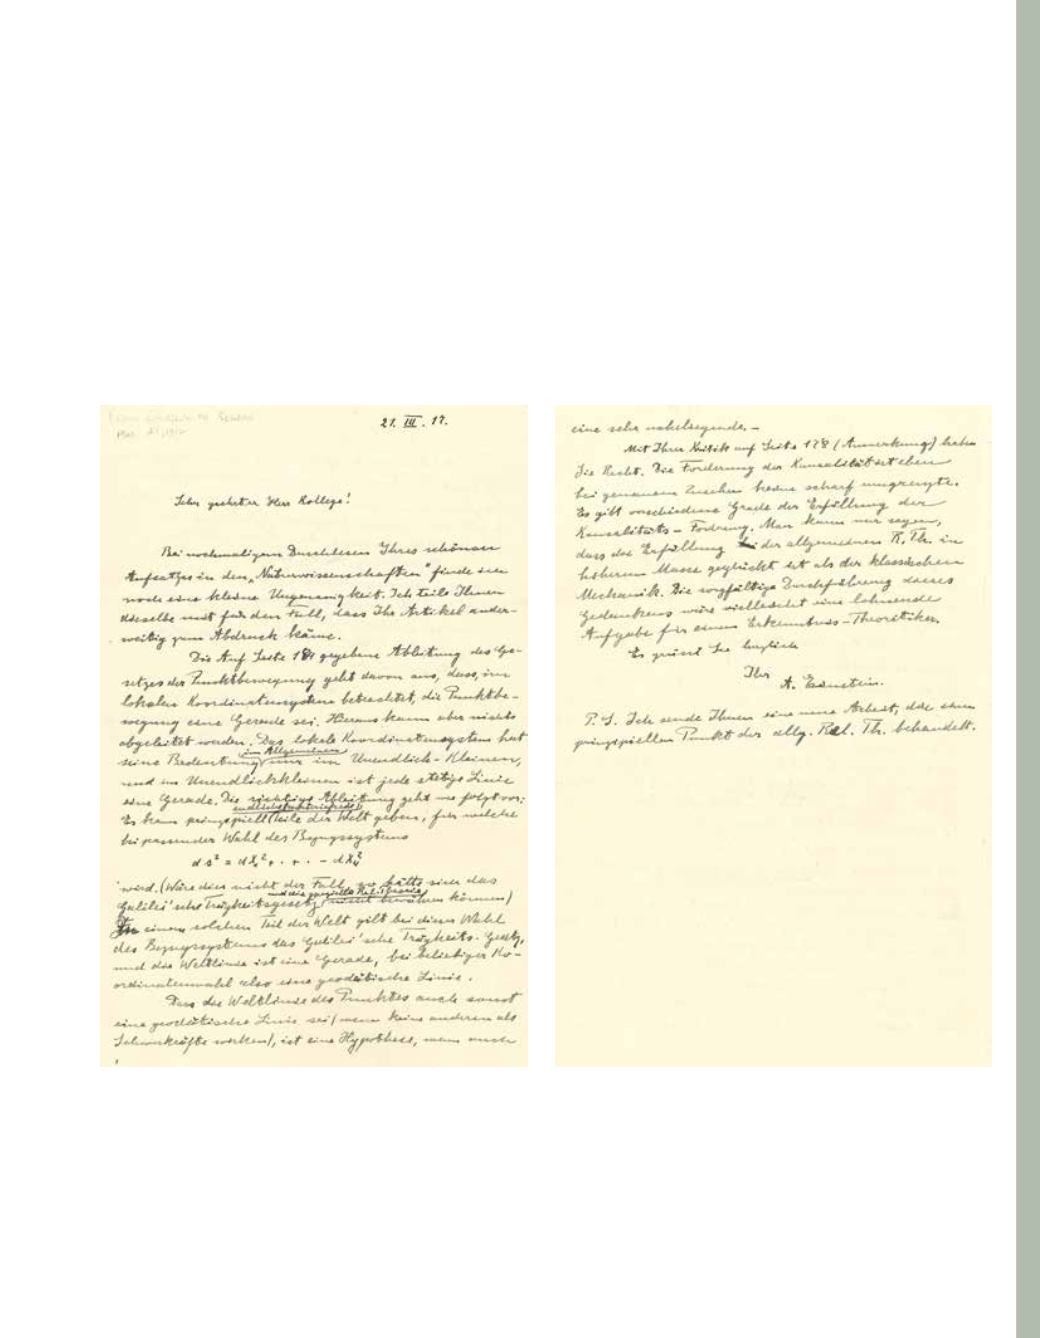 21. III. 17.
Sehr geehrter Herr Kollege!
Bei nochmaligem Durchlesen Ihres schönen
Aufsatzes in den „Naturwissenschaften" finde ich
noch eine kleine Ungenauigkeit. Ich teile Ihnen
dieselbe mit für den Fall, dass Ihr Artikel ander-
weitig zum Abdruck käme.
Die Auf Seite 184 gegebene Ableitung des Ge-
setzes der Punktbewegung geht davon aus, dass, im
lokalen Koordinatensystem betrachtet, die Punktbe-
wegung eine Gerade sei. Hieraus kann aber nichts
abgeleitet werden. Das lokale Koordinatensystem hat
im Allgemeinen
seine Bedeutung nur im Unendlich-Kleinen,
und im Unendlichkleinen ist jede stetige Linie
eine Gerade. Die richtige Ableitung geht wie folgt vor:
Es kann prinzipiell Teile der Welt geben, für welche
bei passender Wahl des Bezugssystems
ds² = dx₁² + . + . - dx₄²
wird. (Wäre dies nicht der Fall, so hätte sich das
Galilei'sche Trägheitsgesetz nicht bewähren können)
In einem solchen Teil der Welt gilt bei dieser Wahl
des Bezugssystems das Galilei'sche Trägheits-Gesetz,
und die Weltlinie ist eine Gerade, bei beliebiger Ko-
ordinatenwahl also eine geodätische Linie.
Dass die Weltlinie des Punktes auch sonst
eine geodätische Linie sei (wenn keine anderen als
Schwerkräfte wirken), ist eine Hypothese, wenn auch
eine sehr naheliegende. –
Mit Ihrer Kritik auf Seite 178 (Anmerkung) haben
Sie Recht. Die Forderung der Kausalität ist eben
bei genauem Zusehen keine scharf umgrenzte.
Es gibt verschiedene Grade der Erfüllung der
Kausalitäts-Forderung. Man kann nur sagen,
dass die Erfüllung bei der allgemeinen R. Th. in
höherem Masse geglückt ist als der klassischen
Mechanik. Die sorgfältige Durchführung dieses
Gedankens wäre vielleicht eine lohnende
Aufgabe für einen Erkenntnis-Theoretiker.
Es grüsst Sie herzlich
Ihr
A. Einstein.
P. S. Ich sende Ihnen eine neue Arbeit, die einen
prinzipiellen Punkt der allg. Rel. Th. behandelt.